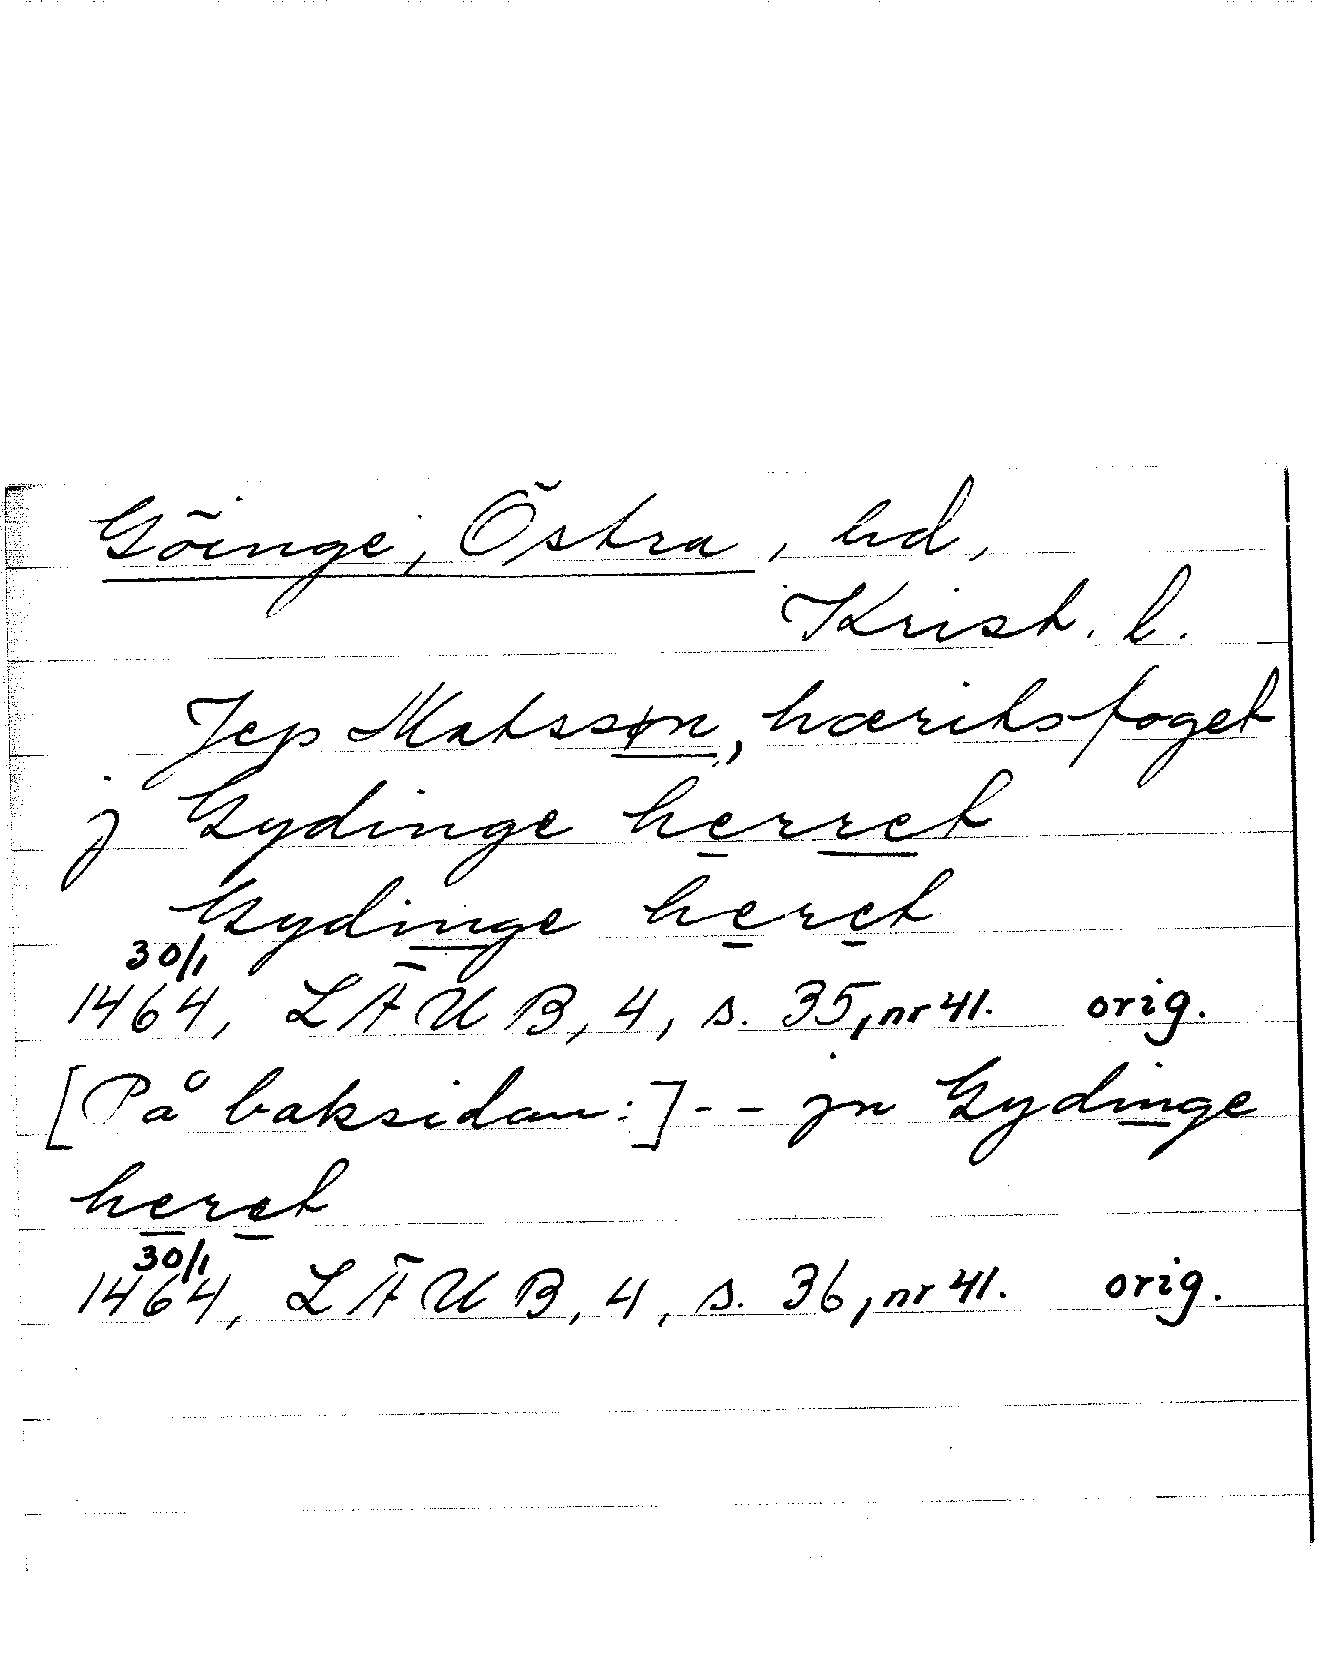 Göinge, Östra, hd,
Krist. l.
Jep Matssøn, hæritsfoget
j Gydinge herret
Gydinge heret
30/1
1464, LÄUB, 4, s. 35, nr 41. orig.
[På baksidan:] - - jn Gydinge
heret
30/1
1464, LÄUB, 4, s. 36, nr 41. orig.